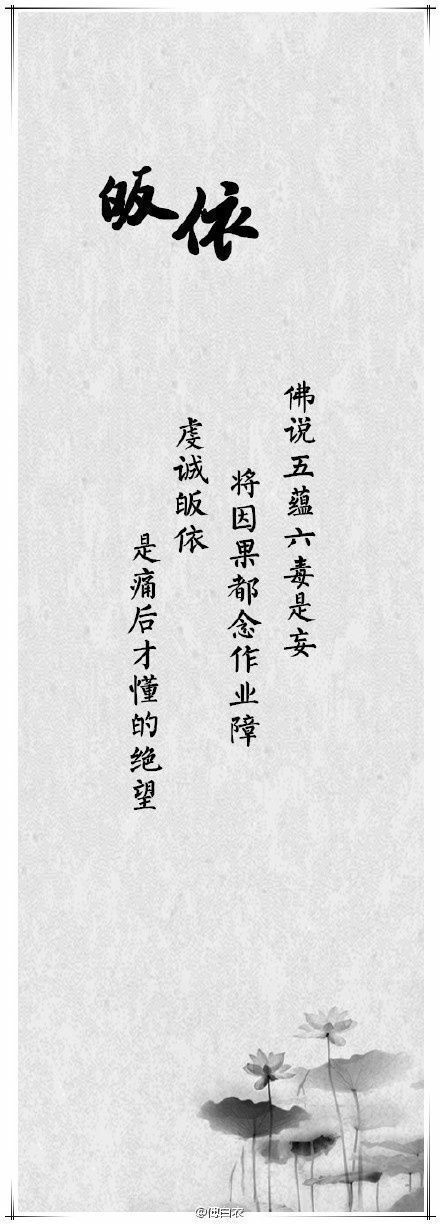 皈依
佛说五蕴六毒是妄
将因果都念作业障
虔诚皈依
是痛后才懂的绝望